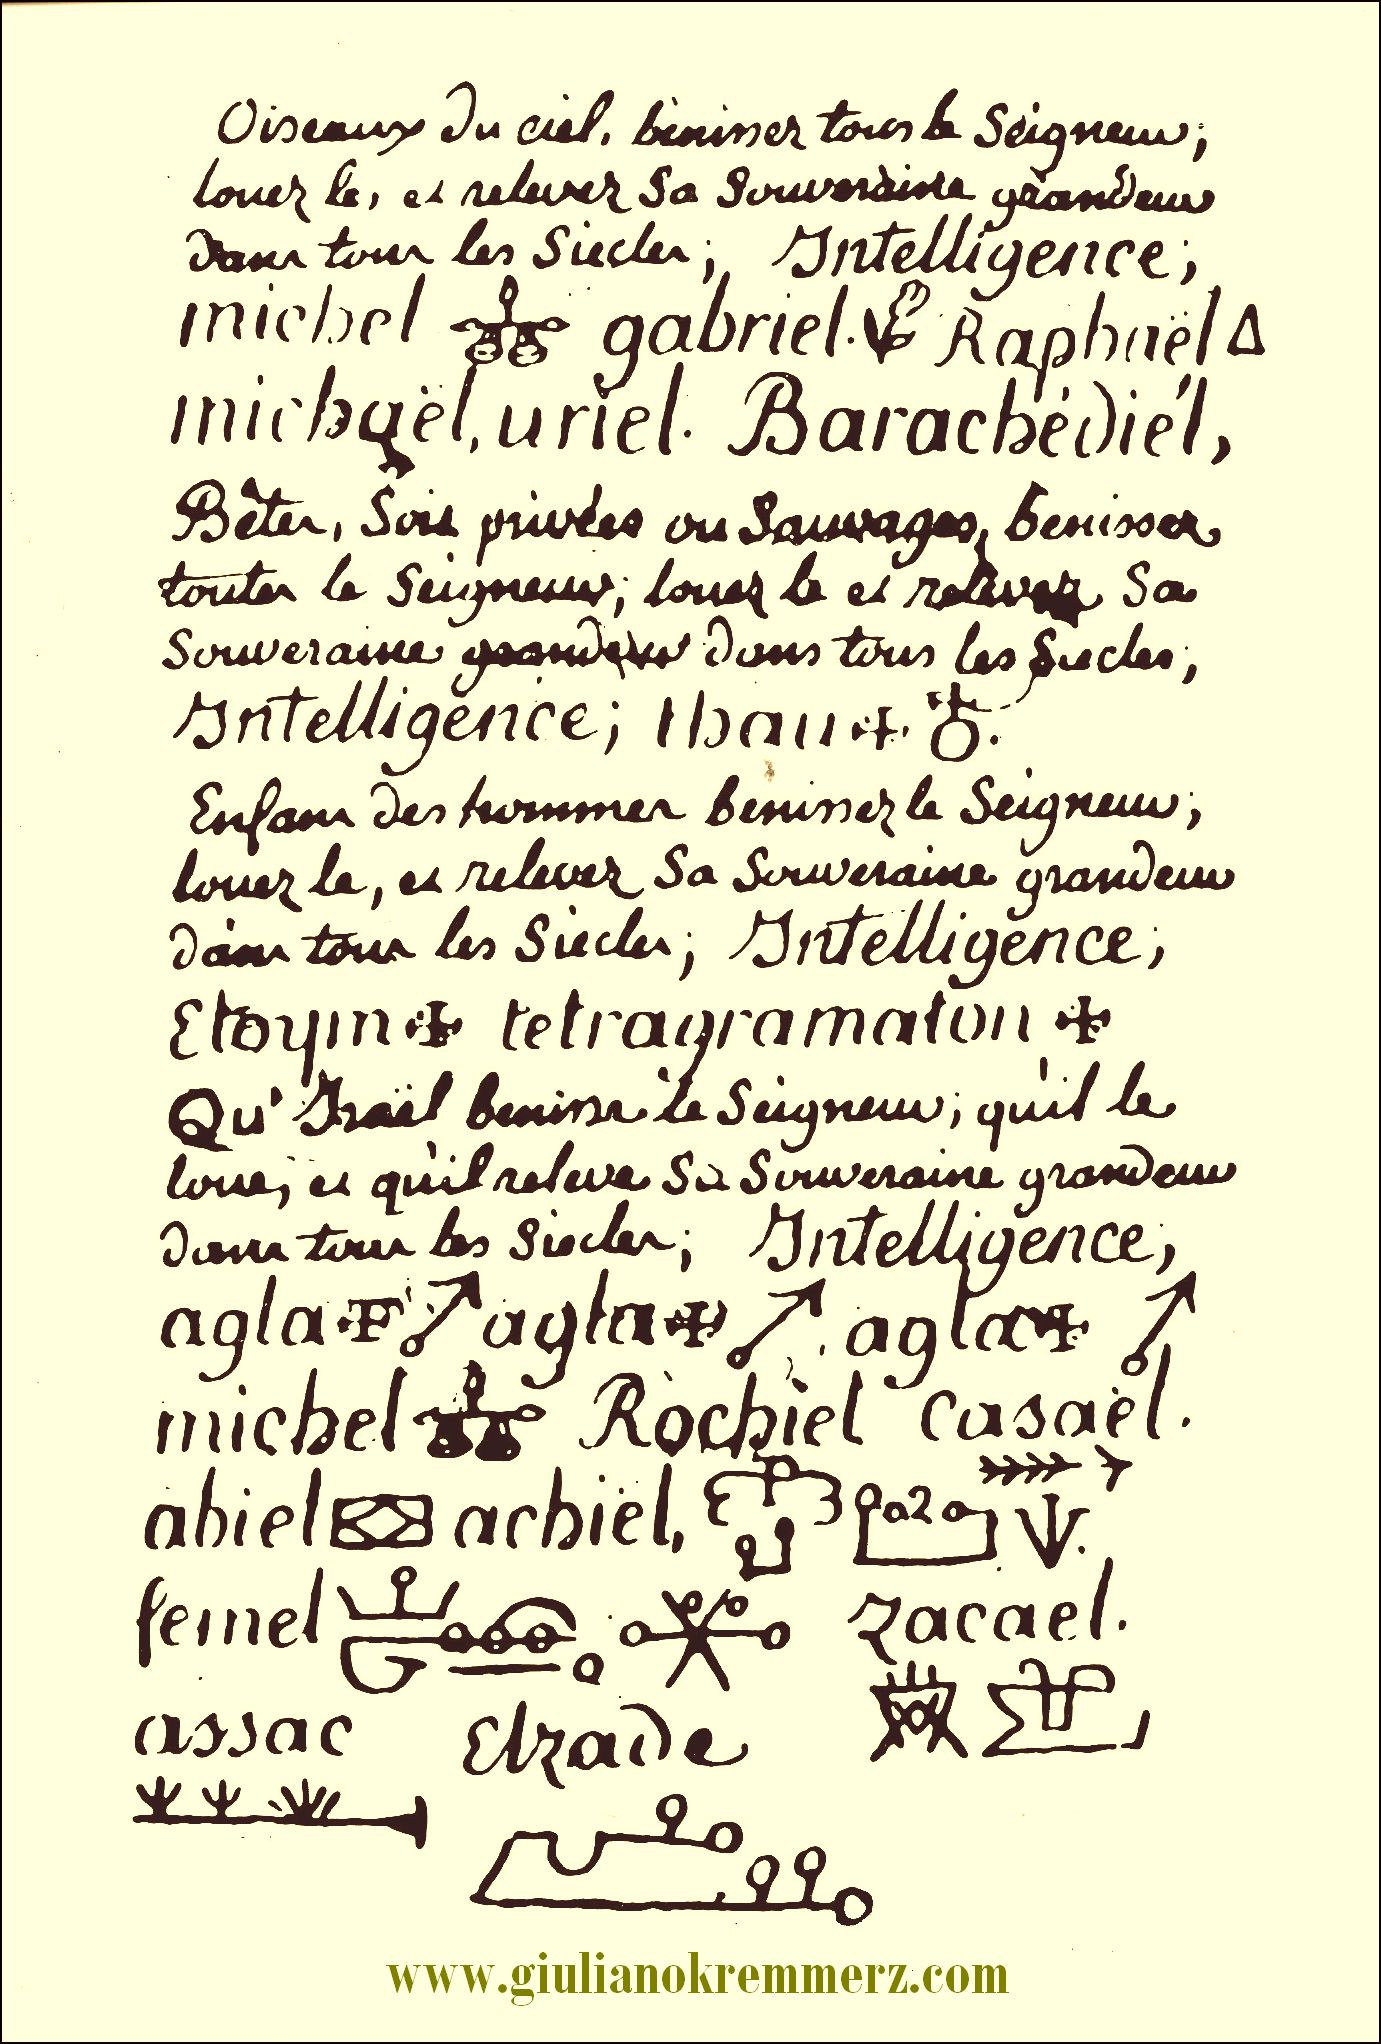 Oiseaux du ciel, bènissez tous le Sèigneur;
louez le, et relevez Sa Souveraine grandeur
dans tous les Siecles; Intelligence;
michel gabriel. Raphaël
michaël, uriel. Barachédiél,
Bêtes, Soit privées ou Sauvages, benissez
toutes le Seigneur; louez le et relevez Sa
Souveraine grandeur dans tous les Siecles;
Intelligence;
Enfans des hommes benissez le Seigneur;
louez le, et relevez Sa Souveraine grandeur
dans tous les Siecles; Intelligence;
Etoym tetragramaton
Qu'Israël benisse le Seigneur; qu'il le
loue, et qu'il releve Sa Souveraine grandeur
dans tous les Siecles; Intelligence,
agla agla agla
michel Rochiel Casaël.
abiel achiel,
femel zacael.
assac Elzade
www.giulianokremmerz.com